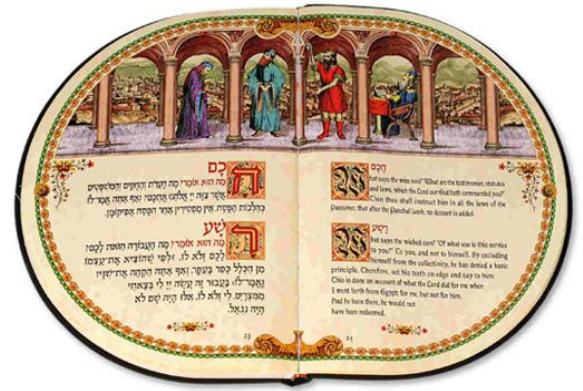 חכם
מה הוא אומר? מה העדות והחקים והמשפטים
אשר צוה יי אלהינו אתכם? ואף אתה אמר לו
כהלכות הפסח אין מפטירין אחר הפסח אפיקומן.
רשע
מה הוא אומר? מה העבודה הזאת לכם?
לכם ולא לו. ולפי שהוציא את עצמו
מן הכלל כפר בעקר. ואף אתה הקהה את שניו
ואמר לו: בעבור זה עשה יי לי בצאתי
ממצרים. לי ולא לו. אלו היה שם לא
היה נגאל.
25
חכם
What says the wise son? "What are the testimonies, statutes
and laws, which the Lord our God hath commanded you?"
Then thou shalt instruct him in all the laws of the
Passover, that after the Paschal lamb, no dessert is added.
רשע
What says the wicked son? "Of what use is this service
to you?" To you, and not to himself. By excluding
himself from the collectivity, he has denied a basic
principle. Therefore, set his teeth on edge and say to him:
This is done on account of what the Lord did for me when
I went forth from Egypt: for me, but not for him.
Had he been there, he would not
have been redeemed.
25